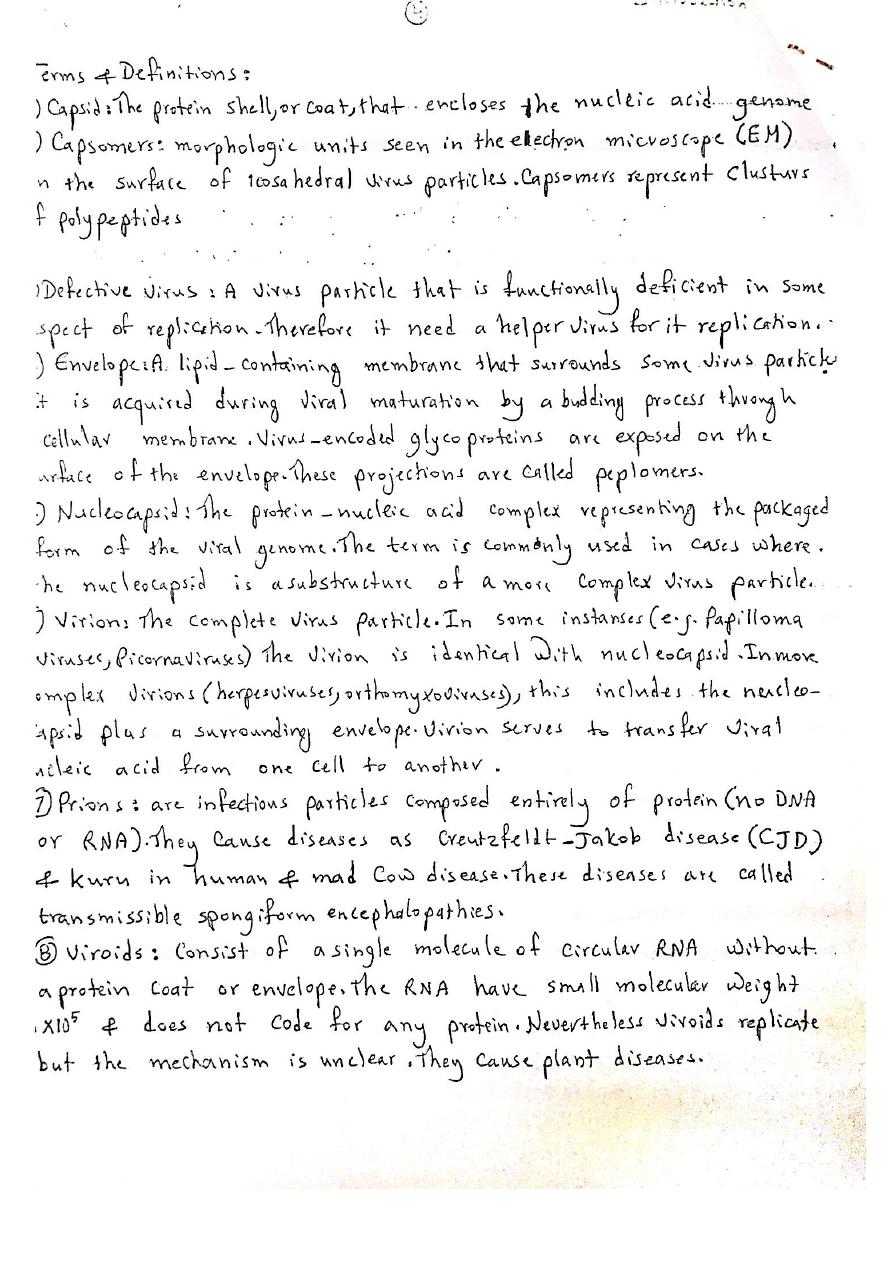 erms & Definitions:
) Capsid: The protein shell, or coat, that encloses the nucleic acid genome
) Capsomers: morphologic units seen in the electron microscope (EM)
n the surface of icosahedral virus particles. Capsomers represent clusturs
f polypeptides
) Defective virus: A virus particle that is functionally deficient in some
spect of replication. Therefore it need a helper virus for it replication.
) Envelope: A lipid-containing membrane that surrounds some virus particle
it is acquired during viral maturation by a budding process through
cellular membrane. Virus-encoded glycoproteins are exposed on the
urface of the envelope. These projections are called peplomers.
) Nucleocapsid: The protein-nucleic acid complex representing the packaged
form of the viral genome. The term is commonly used in cases where
he nucleocapsid is a substructure of a more complex virus particle.
) Virion: The complete virus particle. In some instanses (e.g. Papilloma
viruses, Picornaviruses) the virion is identical with nucleocapsid. In more
omplex virions (herpesviruses, orthomyxoviruses), this includes the nucleo-
apsid plus a surrounding envelope. Virion serves to transfer viral
ucleic acid from one cell to another.
7) Prions: are infectious particles composed entirely of protein (no DNA
or RNA). They cause diseases as Creutzfeldt-Jakob disease (CJD)
& kuru in human & mad cow disease. These diseases are called
transmissible spongiform encephalopathies.
8) Viroids: Consist of a single molecule of circular RNA without
a protein coat or envelope. The RNA have small molecular weight
X10⁵ & does not code for any protein. Nevertheless viroids replicate
but the mechanism is unclear. They cause plant diseases.